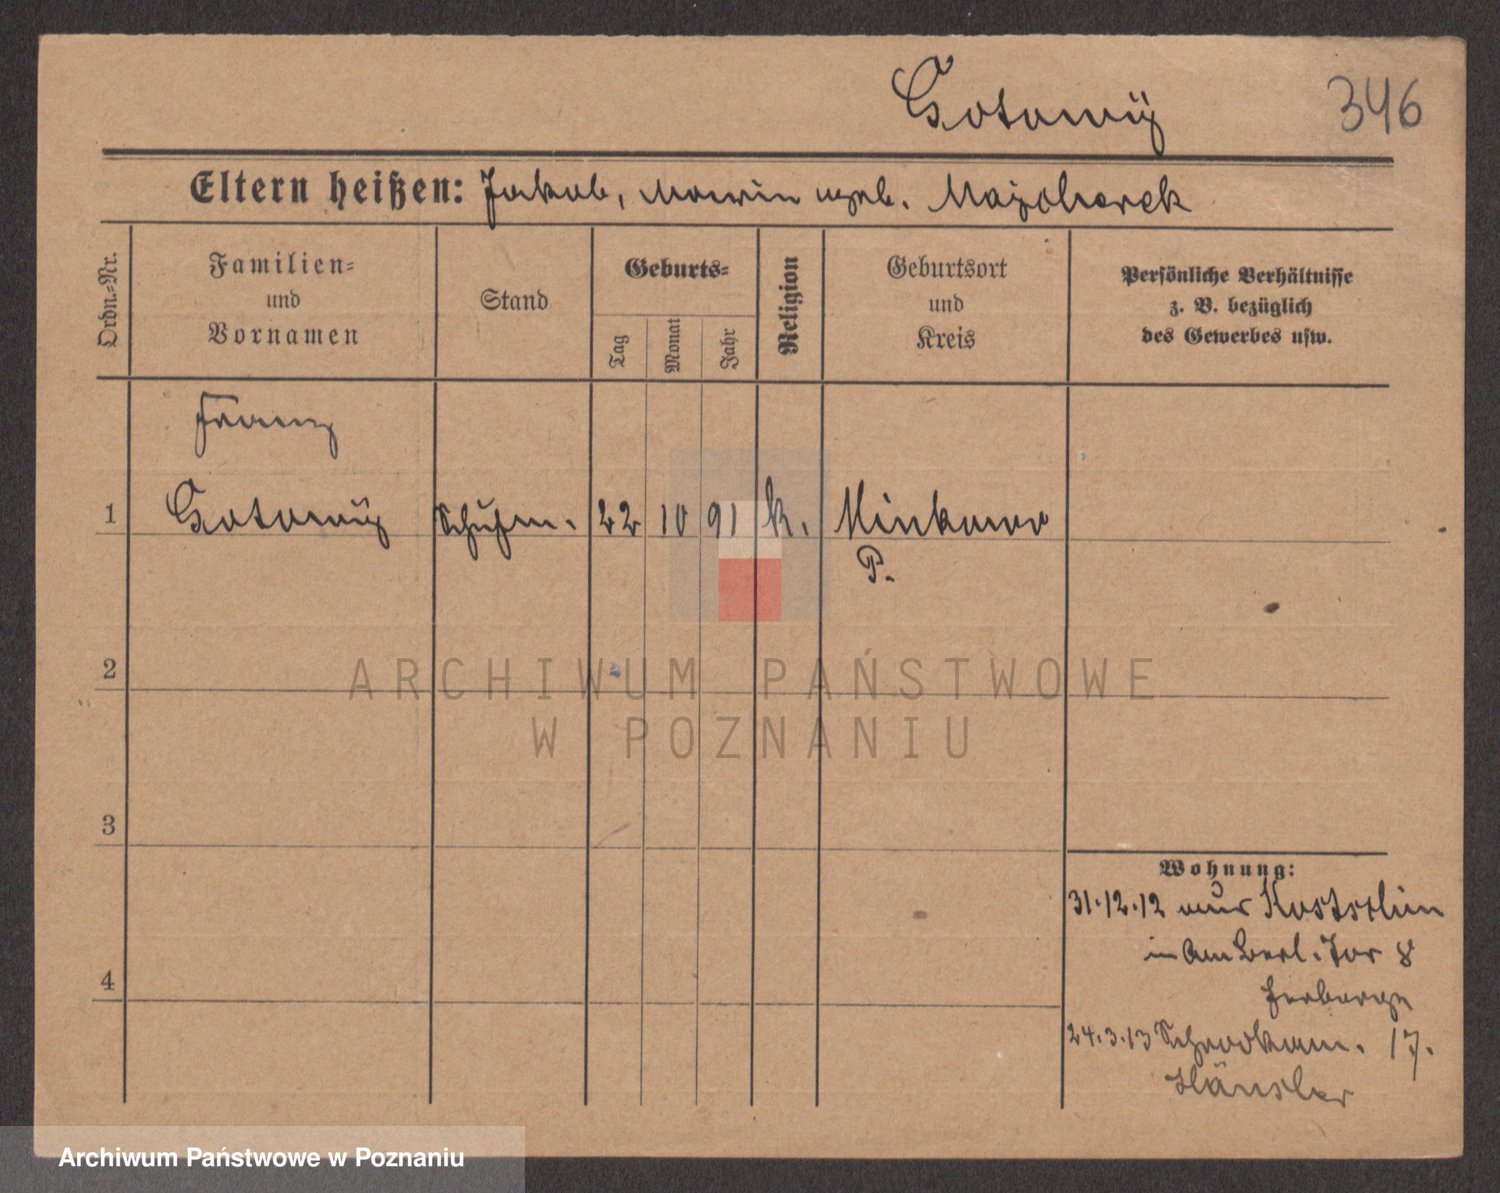 Gotowÿ 346
Eltern heißen: Jakob, Marin geb. Majcherek
Ordn.-Nr.
Familien- und Vornamen
Stand
Geburts-
Tag Monat Jahr
Religion
Geburtsort und Kreis
Persönliche Verhältnisse z. B. bezüglich des Gewerbes usw.
Franz
1 Gotowÿ Schuhm. 22 10 91 k. Minkowo
P.
2
ARCHIWUM PAŃSTWOWE
W POZNANIU
3
Wohnung:
31.12.12 aus
in Am Berl. Tor 8
Herberge
4
24.3.13 Schrodkam. 17.
Hänsler
Archiwum Państwowe w Poznaniu